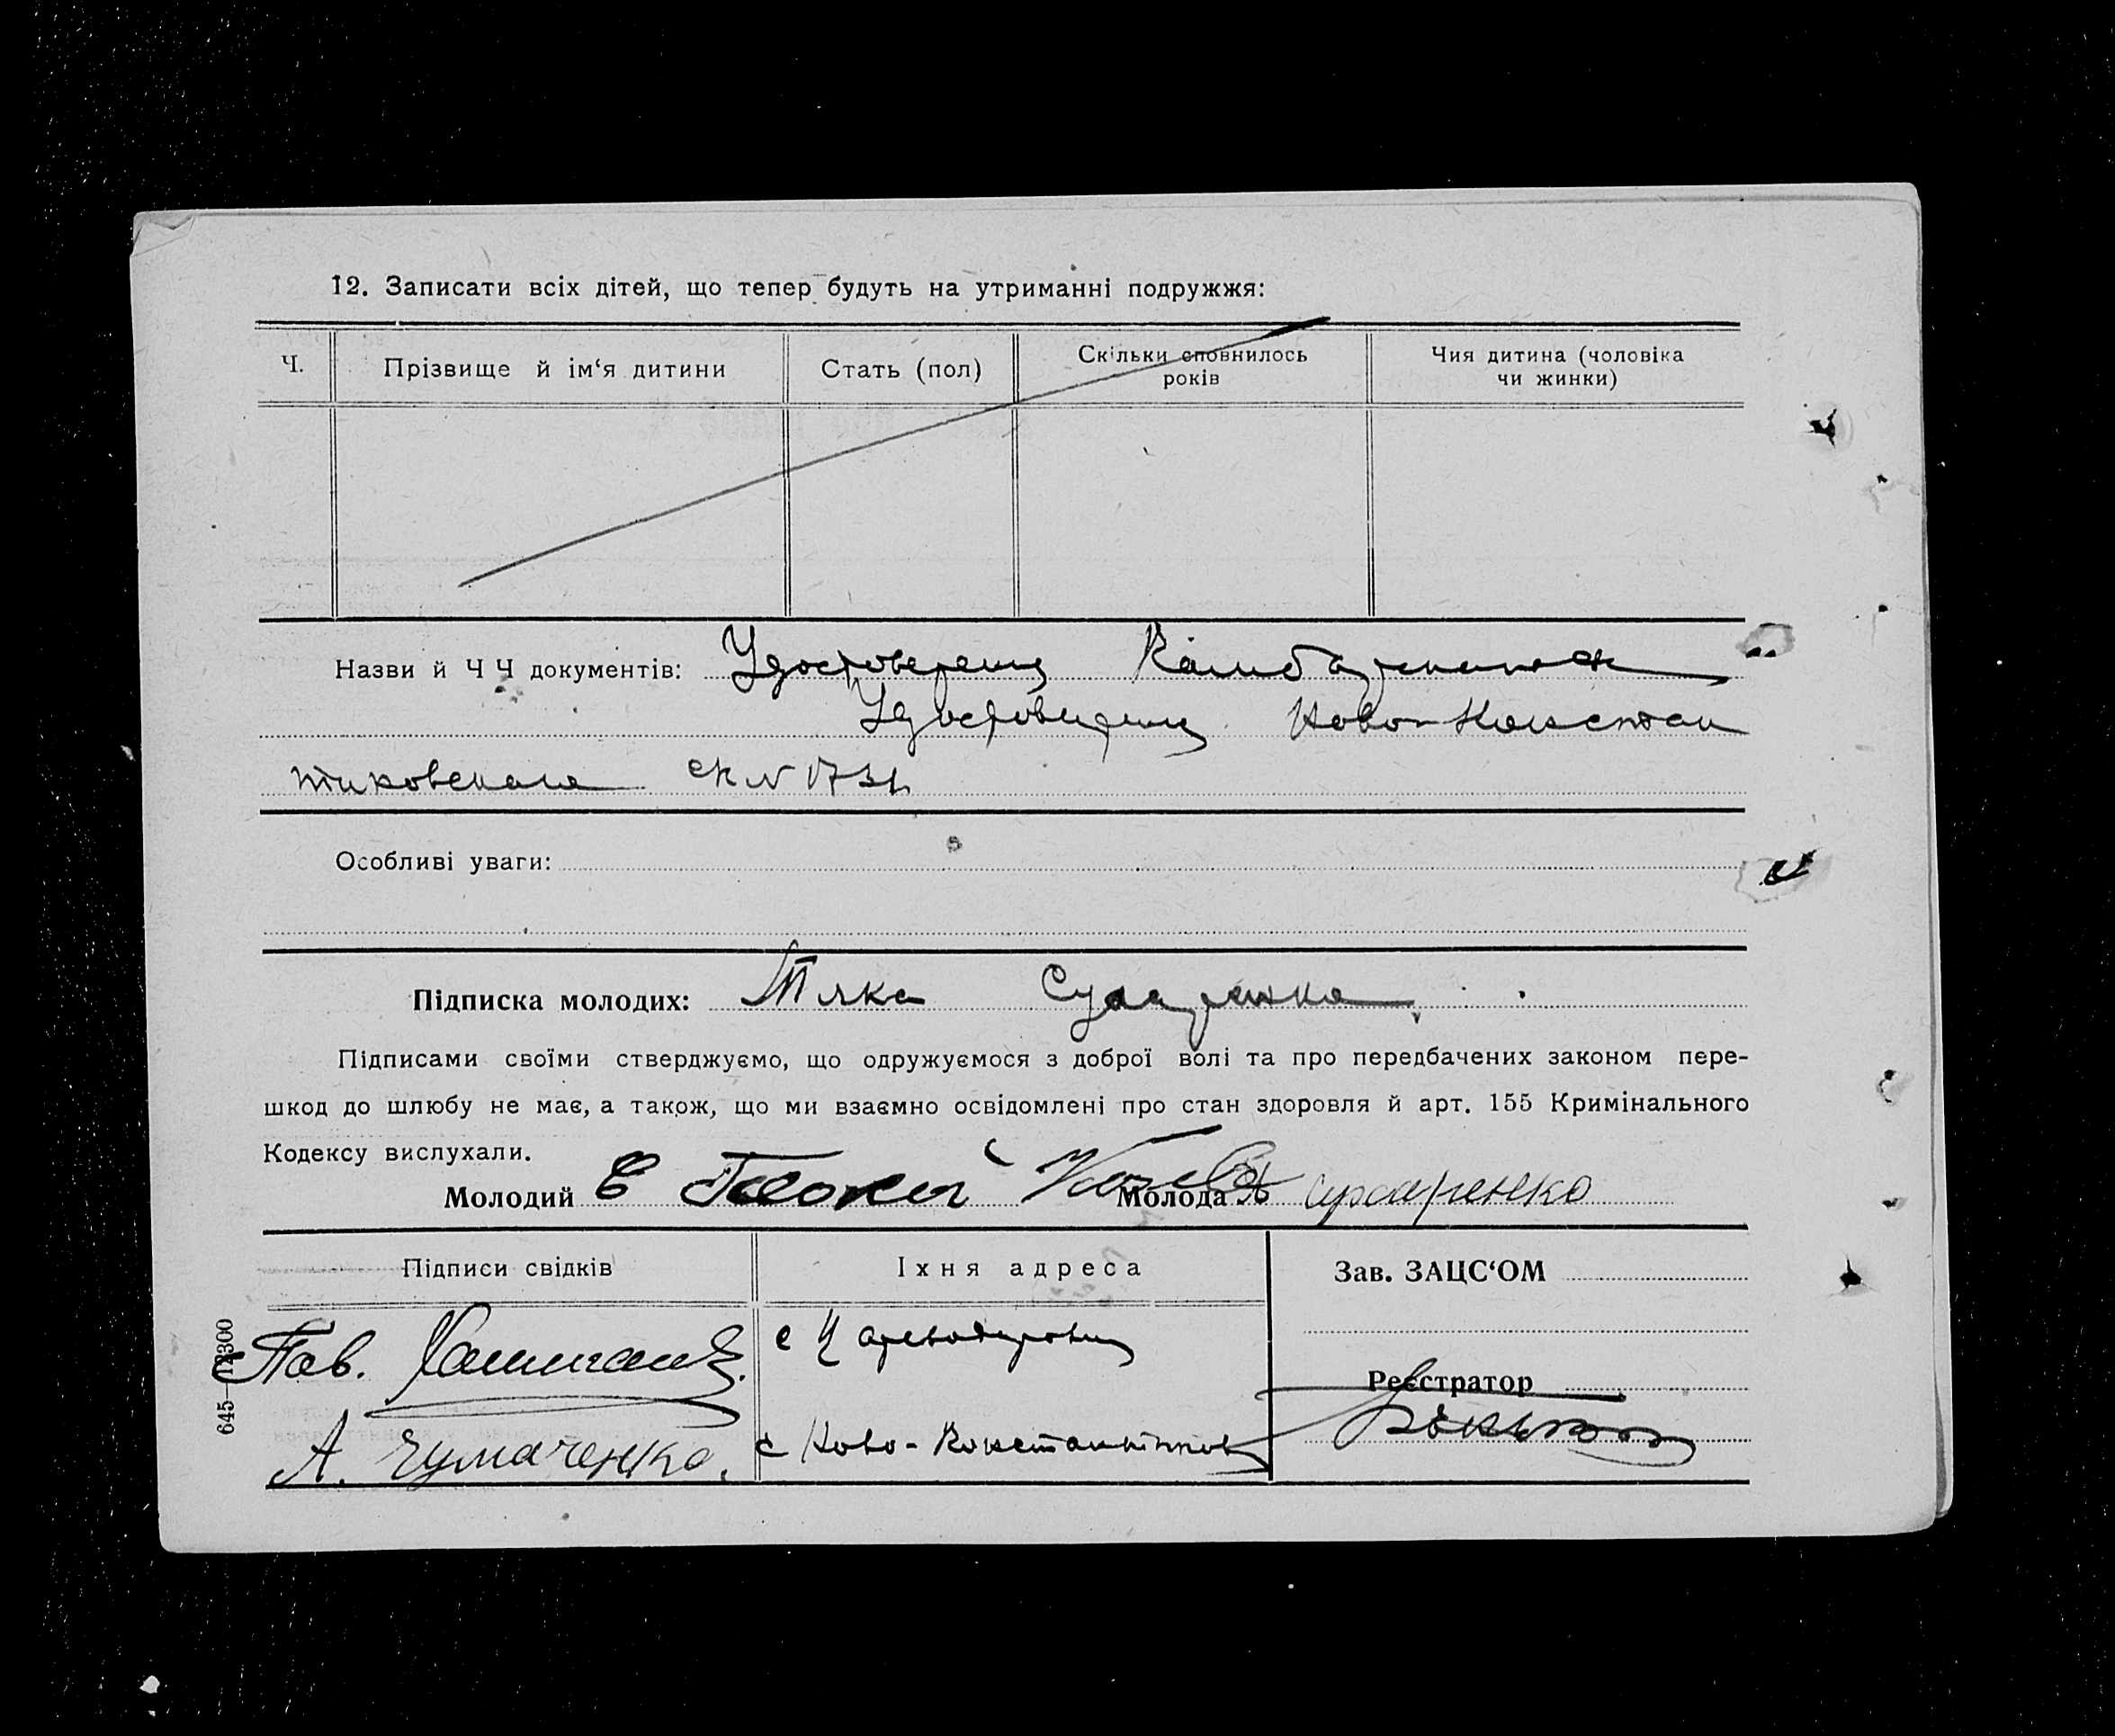 12. Записати всіх дітей, що тепер будуть на утриманні подружжя:
Ч.
Прізвище й ім‘я дитини
Стать (пол)
Скільки сповнилось
років
Чия дитина (чоловіка
чи жинки)
Назви й Ч Ч документів: Удостоверения
Удостоверения Ново-Констан
тиновского ск N 1731
Особливі уваги:
Підписка молодих: Сухаренко
Підписами своїми стверджуємо, що одружуємося з доброї волі та про передбачених законом пере-
шкод до шлюбу не має, а також, що ми взаємно освідомлені про стан здоровля й арт. 155 Кримінального
Кодексу вислухали.
Молодий Молода Сухаренко
Підписи свідків
Їхня адреса
Зав. ЗАЦС‘ОМ
Пав.
с
Реєстратор
А. Чумаченко.
с Ново-Константинов
645—12300